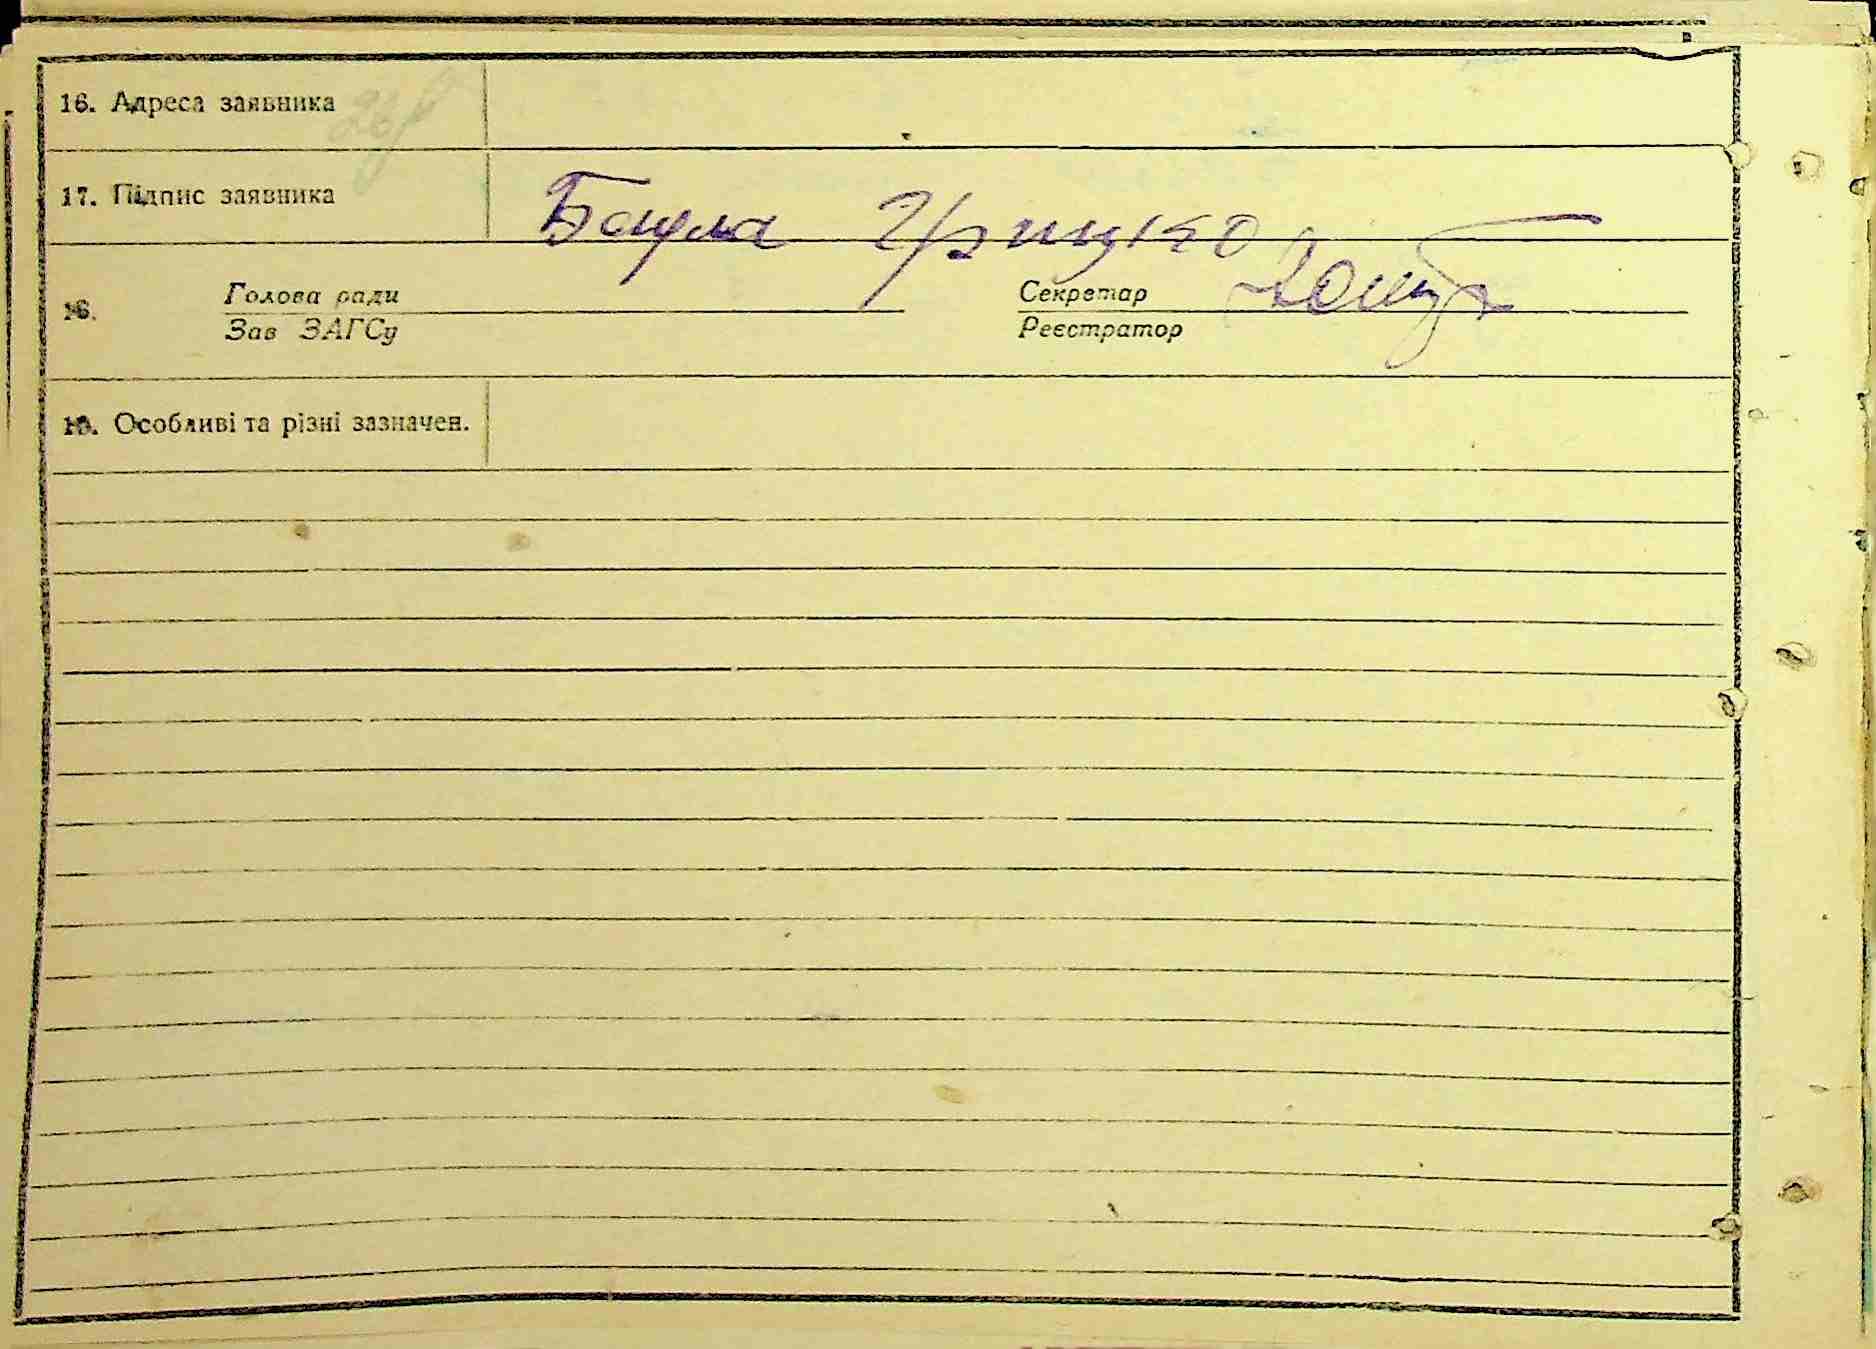 16. Адреса заявника
17. Підпис заявника Бакула Грицько
18. Голова ради Секретар
Зав ЗАГСу Реєстратор
19. Особливі та різні зазначен.